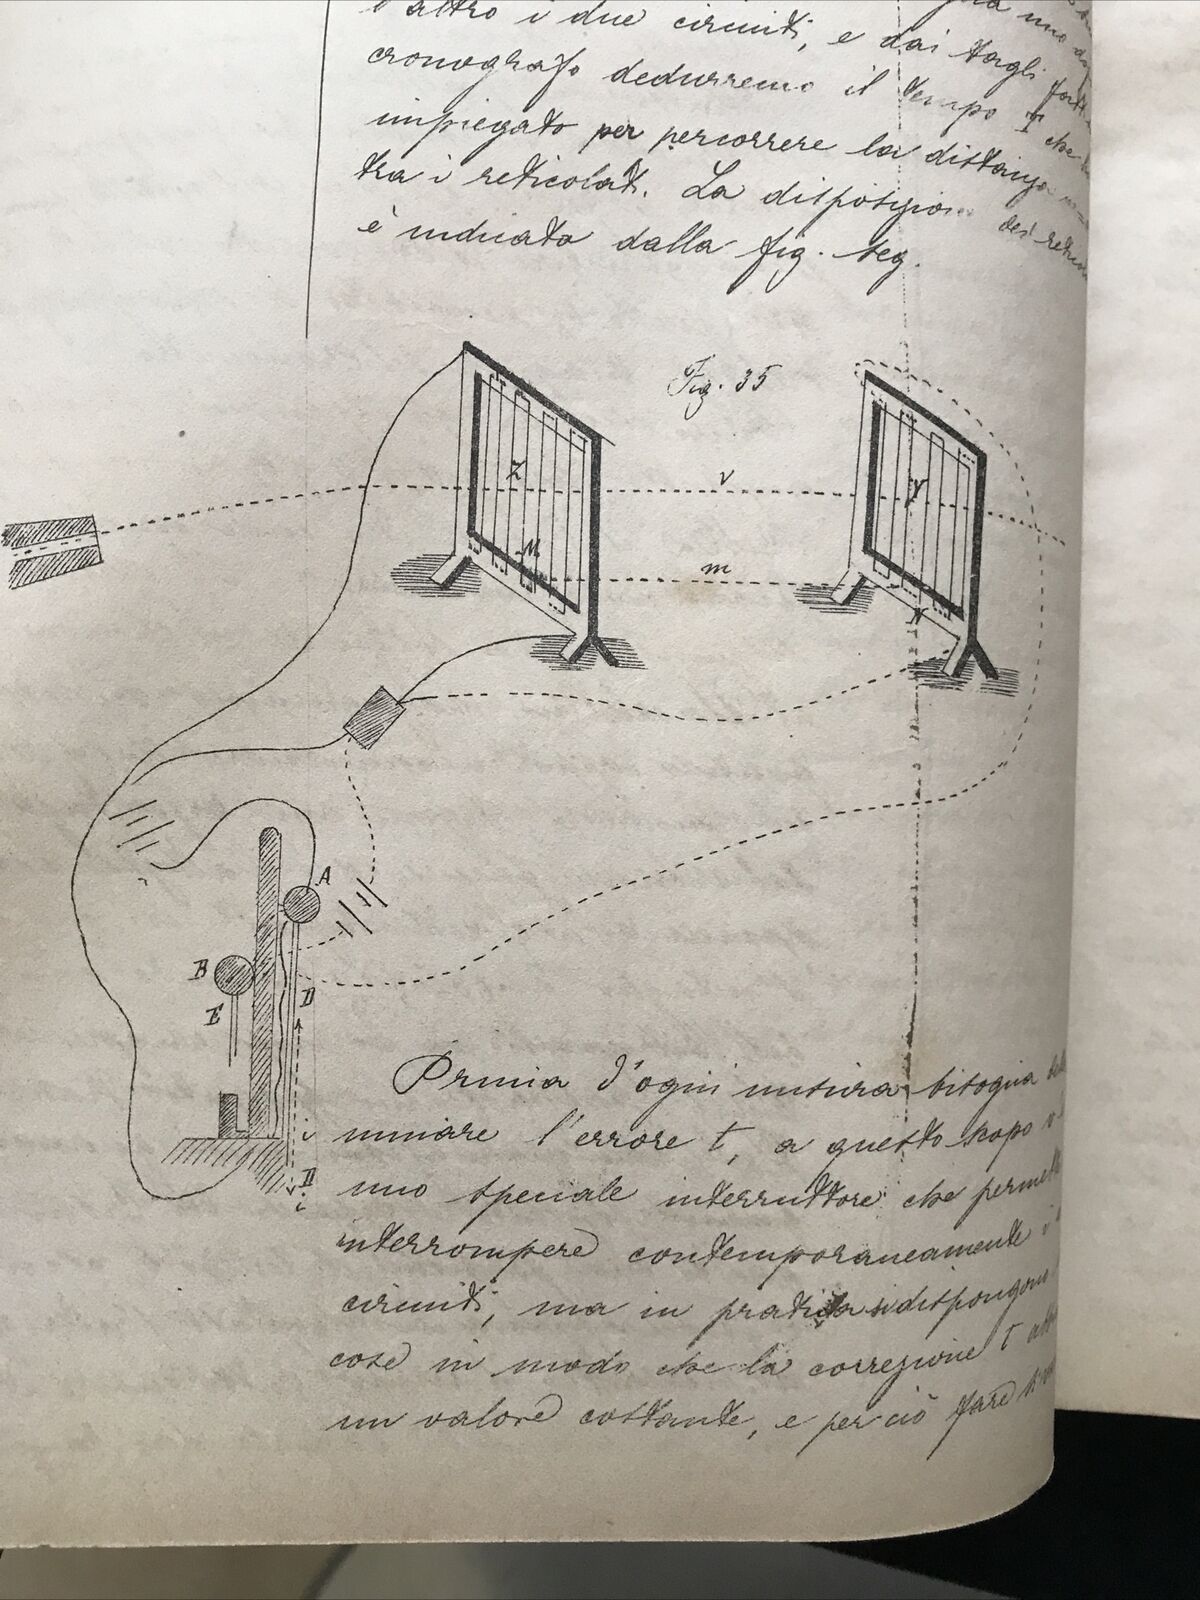 l'altro i due circuiti, e dai tagli
cronografo dedurremo il tempo T che
impiegato per percorrere la distanza
tra i reticolati. La disposizione dei
è indicata dalla fig. seg.
Fig. 35
Z
v
Y
M
m
N
A
B
D
E
i
D
i
Prima d'ogni misura bisogna
minare l'errore t, a questo scopo
uno speciale interruttore che
interrompere contemporaneamente i
circuiti, ma in pratica si dispongono
cose in modo che la correzione t
un valore costante, e per ciò fare